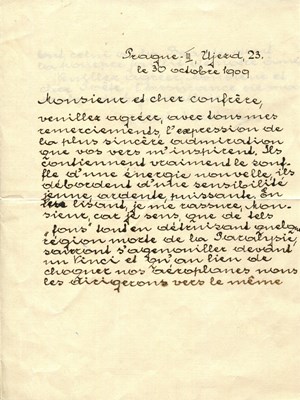 Prague-II, Ujezd, 23.
le 30 octobre 1909
Monsieur et cher confrère,
veuillez agréer, avec tous mes
remerciements, l'expression de
la plus sincère admiration
que vos vers m'inspirent. Ils
contiennent vraiment le souf-
fle d'une énergie nouvelle, ils
débordent d'une sensibilité
jeune, ardente, puissante. En
lisant, je me rassure, Mon-
sieur, car je sens, que de tels
"fous" tout en détruisant quelque
région morte de la Paralysie,
sauront s'agenouiller devant
un Vinci et qu'au lien de
choquer nos aéroplanes nous
les dirigerons vers le même